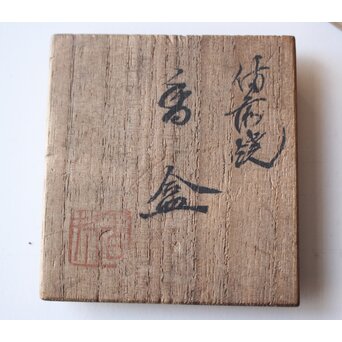 備前焼
香盒